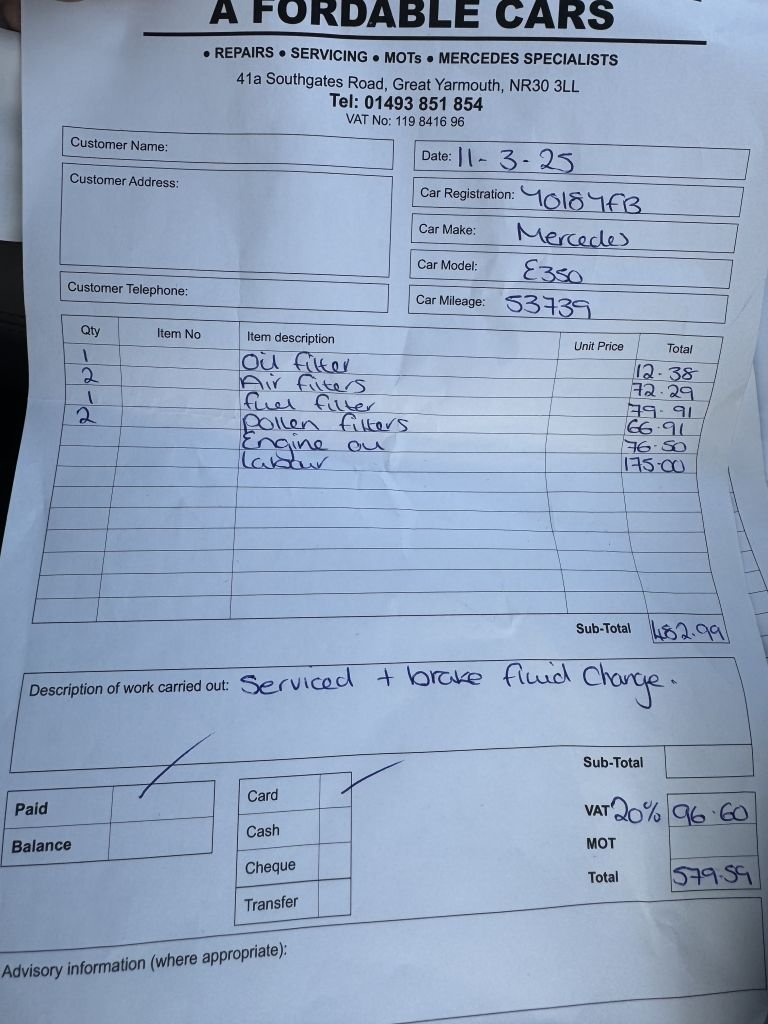 A FORDABLE CARS
• REPAIRS • SERVICING • MOTs • MERCEDES SPECIALISTS
41a Southgates Road, Great Yarmouth, NR30 3LL
Tel: 01493 851 854
VAT No: 119 8416 96
Customer Name:
Date: 11-3-25
Customer Address:
Car Registration: YO18YFB
Car Make: Mercedes
Car Model: E350
Customer Telephone:
Car Mileage: 53739
Qty Item No Item description Unit Price Total
1 Oil filter 12.38
2 Air filters 72.29
1 fuel filter 79.91
2 pollen filters 66.91
Engine oil 76.50
Labour 175.00
Sub-Total 482.99
Description of work carried out: Serviced + brake fluid Change.
Sub-Total
Paid
Card
VAT 20% 96.60
Balance
Cash
MOT
Cheque
Total 579.59
Transfer
Advisory information (where appropriate):